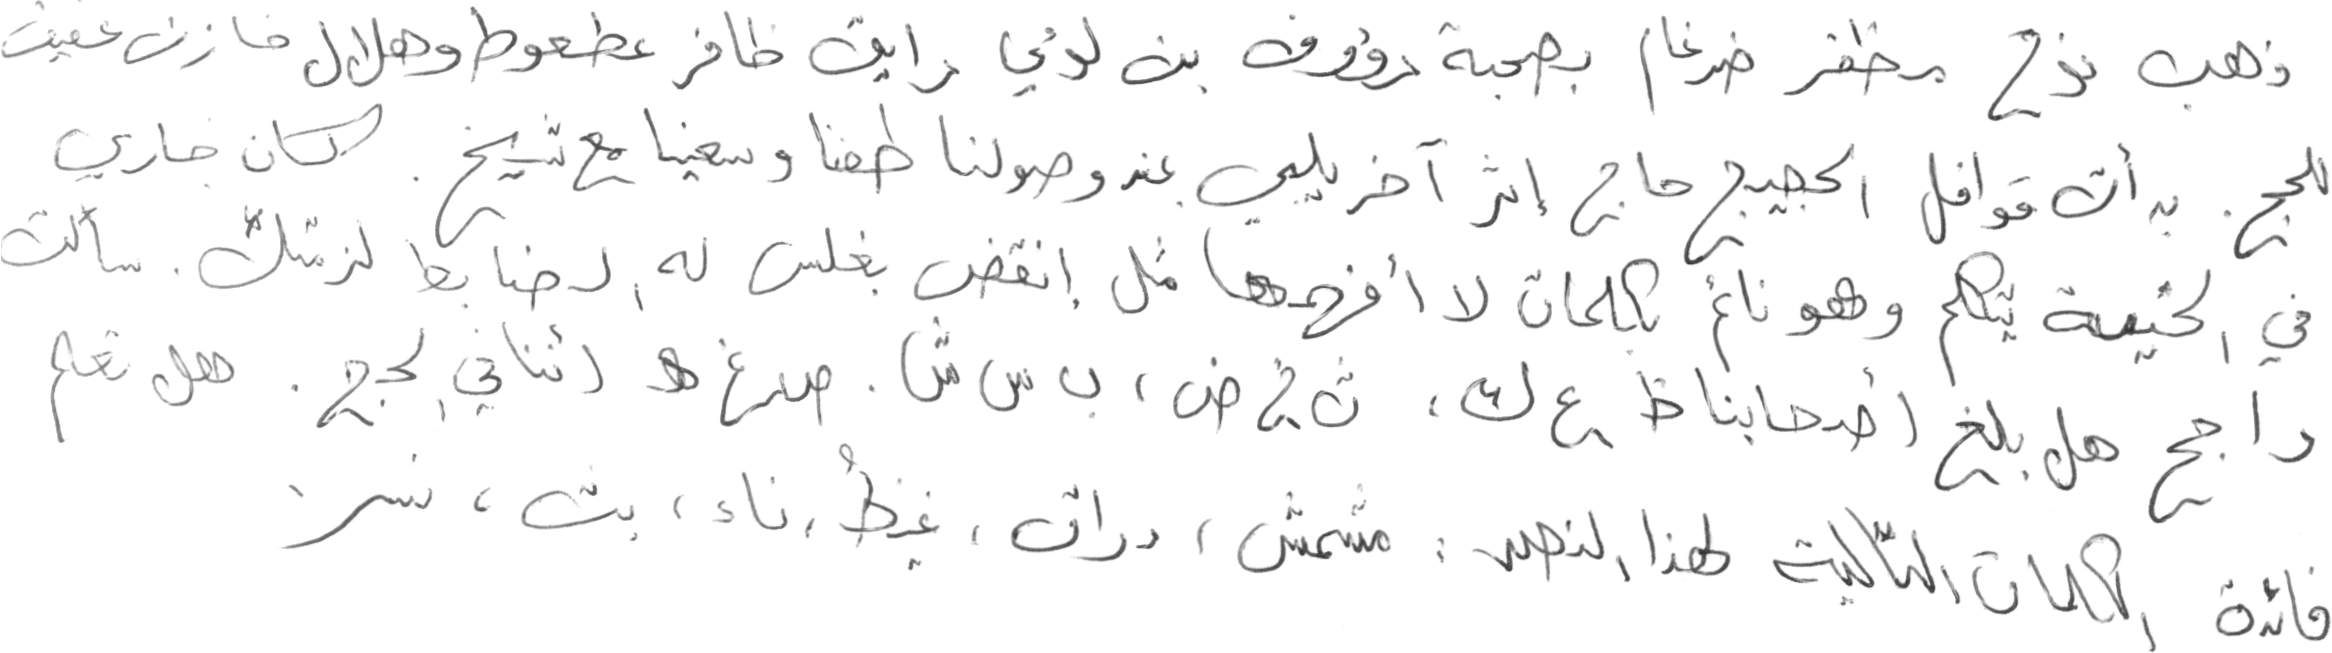 ذهب نوح مظفر ضرغام بصحبة رؤوف بن لؤي رايق ظافر عطعوط وهلال خازن عفيف
للحج. بدأت قوافل الحجيج حاج إثر آخر يلبي عند وصولنا طفنا وسعينا مع شيخ. كان جاري
في الخيمة يتكلم وهو نائم بكلمات لا أفهمها مثل إنقض بغلس له الضابط لزمتك. سألت
راجح هل بلغ أصحابنا ظ ع ك، ث خ ض، ب س ش. صدغ هـ أثنا في الحج. هل تعلم
فائدة الكلمات التالية لهذا النص: مشمش، درات، غيظ، ناء، بث، نسر